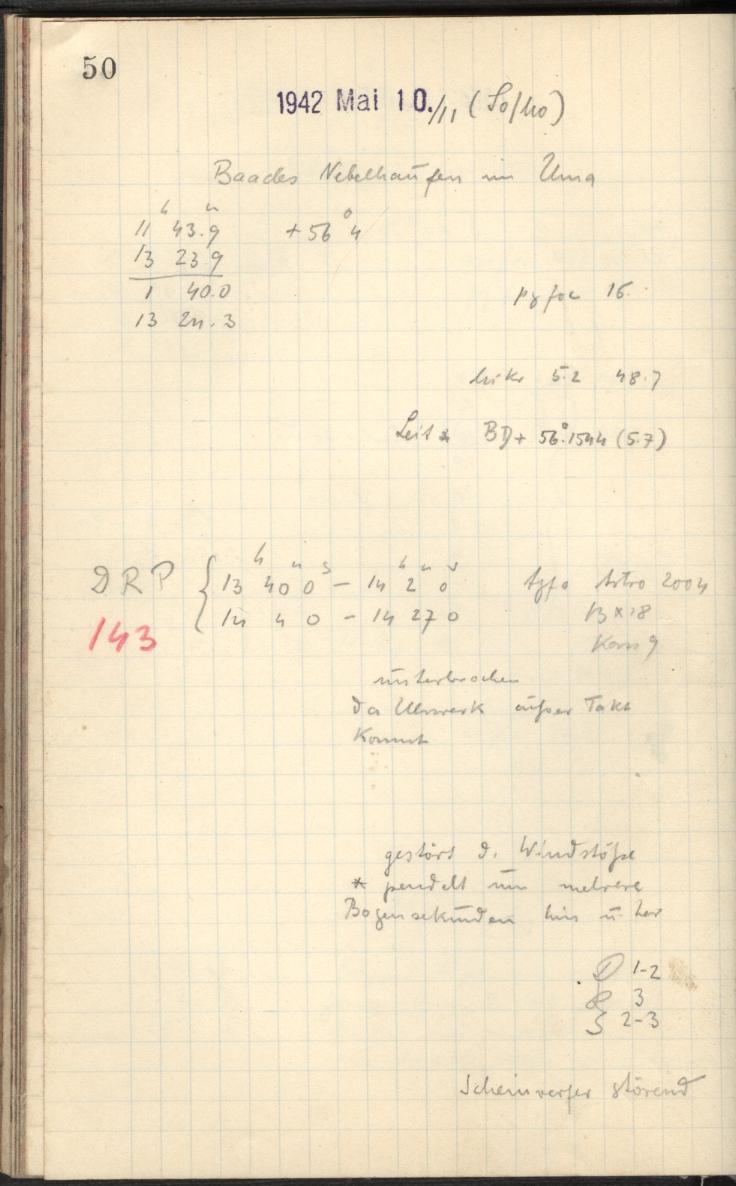 50
1942 Mai 10./11 (So/Mo)
Baades Nebelhaufen im Uma
h m
11 43.9 +56° 4
13 23.9
1 40.0
13 24.3
pg foc 16.
Mikr 5.2 48.7
Leit * BD+ 56°.1544 (5.7)
h m s h m s
DRP { 13 40 0 – 14 2 0 Agfa Astro 2004
14 4 0 – 14 27 0 13 × 18
143 Kass 9
unterbrochen
da Uhrwerk außer Takt
kommt
gestört d. Windstöße
* pendelt um mehrere
Bogensekunden hin u her
D 1-2
3
S 2-3
Scheinwerfer störend